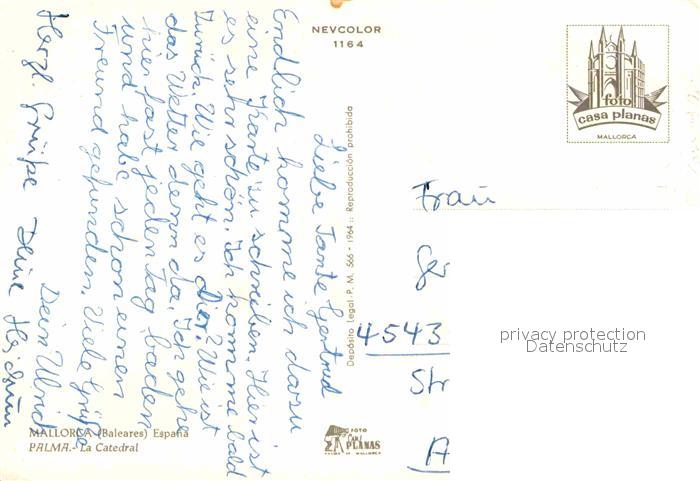 Liebe Tante Gertrud
Endlich komme ich dazu
eine Karte zu schreiben. Hier ist
es sehr schön. Ich komme bald
zurück. Wie geht es Dir? Wie ist
das Wetter denn da. Ich gehe
hier fast jeden Tag baden
und habe schon einen
Freund gefunden. Viele Grüße
Dein Ulrich
Herzl. Grüße Deine
NEVCOLOR
1164
foto
casa planas
MALLORCA
Depósito Legal P. M. 566 - 1964 :: Reproducción prohibida
Frau
Ger
4543
Str
A
privacy protection
Datenschutz
MALLORCA (Baleares) España
PALMA.- La Catedral
FOTO
CASA
PLANAS
PALMA DE MALLORCA